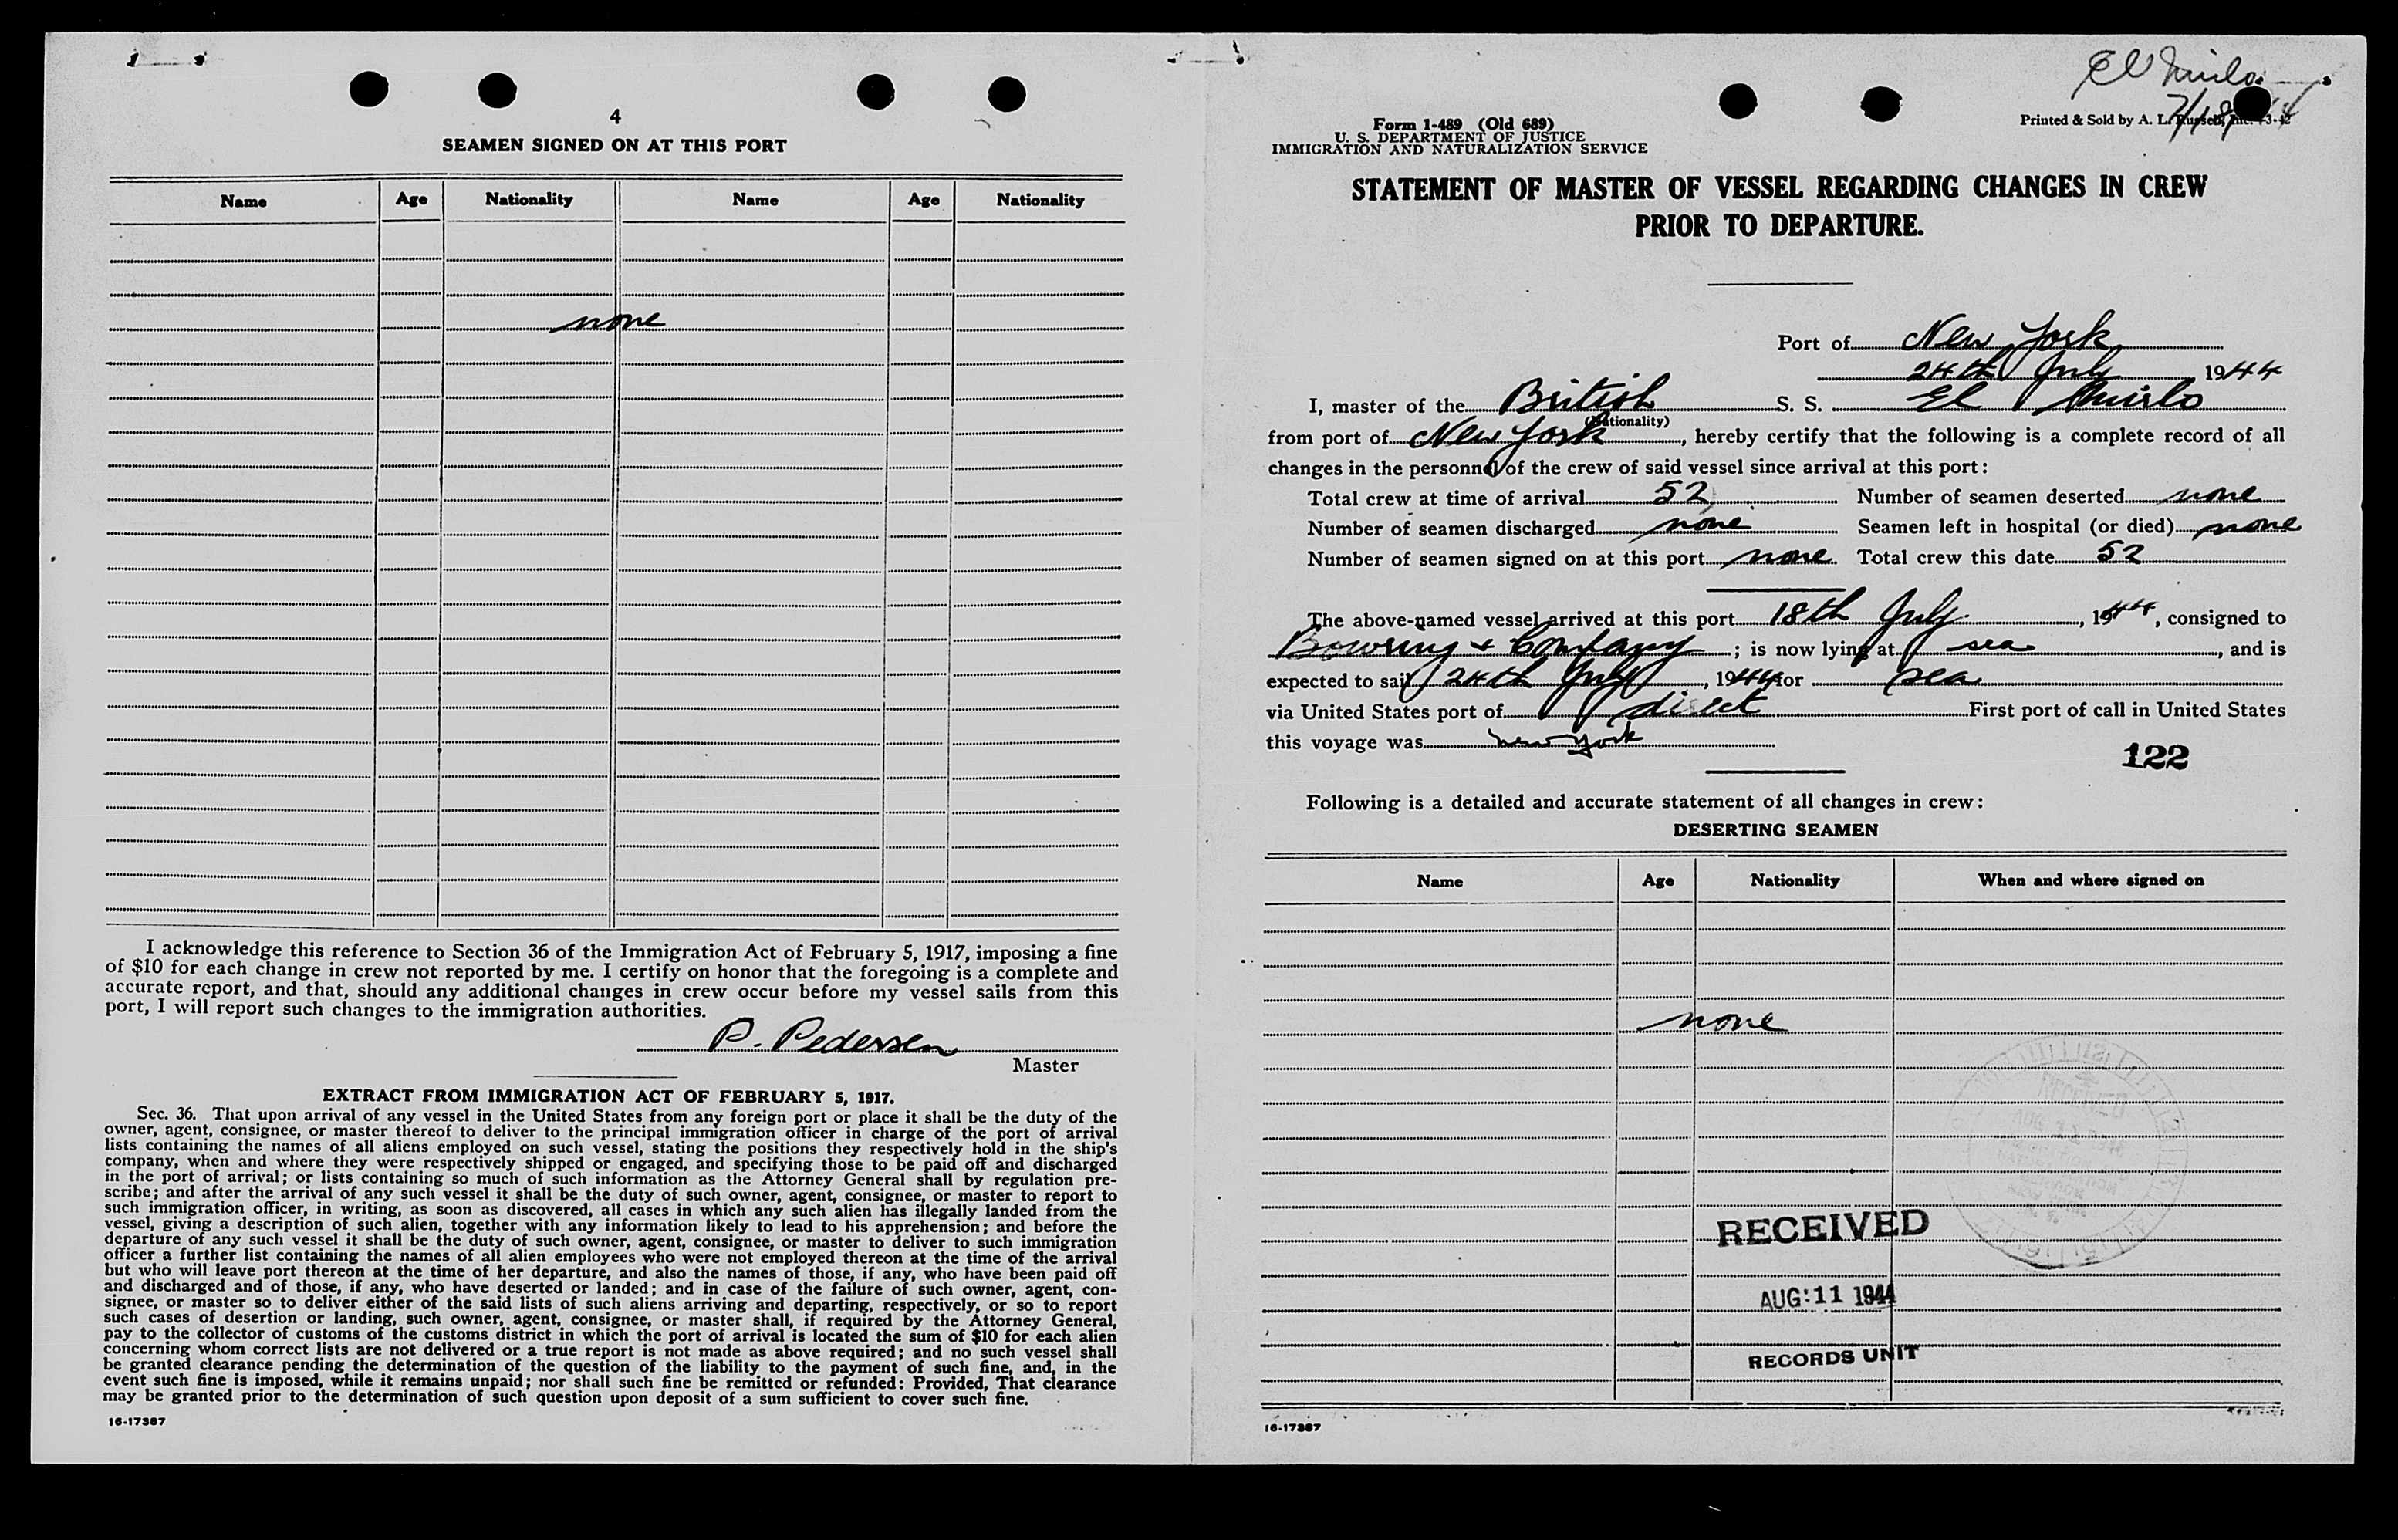 4
SEAMEN SIGNED ON AT THIS PORT
Name Age Nationality Name Age Nationality
none
I acknowledge this reference to Section 36 of the Immigration Act of February 5, 1917, imposing a fine
of $10 for each change in crew not reported by me. I certify on honor that the foregoing is a complete and
accurate report, and that, should any additional changes in crew occur before my vessel sails from this
port, I will report such changes to the immigration authorities.
P. Pedersen
Master
EXTRACT FROM IMMIGRATION ACT OF FEBRUARY 5, 1917.
Sec. 36. That upon arrival of any vessel in the United States from any foreign port or place it shall be the duty of the
owner, agent, consignee, or master thereof to deliver to the principal immigration officer in charge of the port of arrival
lists containing the names of all aliens employed on such vessel, stating the positions they respectively hold in the ship's
company, when and where they were respectively shipped or engaged, and specifying those to be paid off and discharged
in the port of arrival; or lists containing so much of such information as the Attorney General shall by regulation pre-
scribe; and after the arrival of any such vessel it shall be the duty of such owner, agent, consignee, or master to report to
such immigration officer, in writing, as soon as discovered, all cases in which any such alien has illegally landed from the
vessel, giving a description of such alien, together with any information likely to lead to his apprehension; and before the
departure of any such vessel it shall be the duty of such owner, agent, consignee, or master to deliver to such immigration
officer a further list containing the names of all alien employees who were not employed thereon at the time of the arrival
but who will leave port thereon at the time of her departure, and also the names of those, if any, who have been paid off
and discharged and of those, if any, who have deserted or landed; and in case of the failure of such owner, agent, con-
signee, or master so to deliver either of the said lists of such aliens arriving and departing, respectively, or so to report
such cases of desertion or landing, such owner, agent, consignee, or master shall, if required by the Attorney General,
pay to the collector of customs of the customs district in which the port of arrival is located the sum of $10 for each alien
concerning whom correct lists are not delivered or a true report is not made as above required; and no such vessel shall
be granted clearance pending the determination of the question of the liability to the payment of such fine, and, in the
event such fine is imposed, while it remains unpaid; nor shall such fine be remitted or refunded: Provided, That clearance
may be granted prior to the determination of such question upon deposit of a sum sufficient to cover such fine.
16-17387
El Mirlo
7/18/44
Form 1-489 (Old 689)
U. S. DEPARTMENT OF JUSTICE
IMMIGRATION AND NATURALIZATION SERVICE
Printed & Sold by A. L. Russell, Inc.
STATEMENT OF MASTER OF VESSEL REGARDING CHANGES IN CREW
PRIOR TO DEPARTURE.
Port of New York
24th July 1944
I, master of the British S. S. El Mirlo
(Nationality)
from port of New York, hereby certify that the following is a complete record of all
changes in the personnel of the crew of said vessel since arrival at this port:
Total crew at time of arrival 52 Number of seamen deserted none
Number of seamen discharged none Seamen left in hospital (or died) none
Number of seamen signed on at this port none Total crew this date 52
The above-named vessel arrived at this port 18th July, 1944, consigned to
Bowring & Company; is now lying at sea, and is
expected to sail 24th July, 1944 for sea
via United States port of direct First port of call in United States
this voyage was New York
122
Following is a detailed and accurate statement of all changes in crew:
DESERTING SEAMEN
Name Age Nationality When and where signed on
none
RECEIVED
AUG 11 1944
RECORDS UNIT
16-17387